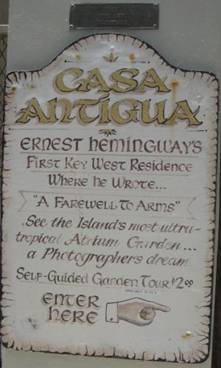 CASA
ANTIGUA
ERNEST HEMINGWAY'S
FIRST KEY WEST RESIDENCE
WHERE HE WROTE...
"A FAREWELL TO ARMS"
See the Island's most ultra-
tropical Atrium Garden...
a Photographers dream
SELF-GUIDED GARDEN TOUR $2.00
ENTER
HERE